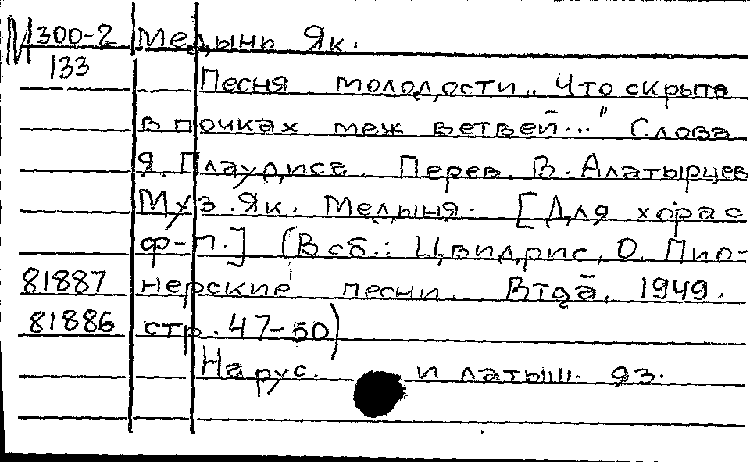 М 300-2 Медынь Як.
133
Песня молодости „Что скрыта
в почках меж ветвей..." Слова
Я. Плаудиса. Перев. В. Алатырцев
Муз. Як. Медыня. [Для хора с
ф-п.] (В сб.: Цвидрис, О. Пио-
81887 нерские песни. 1949.
81886 стр. 47-50)
На рус. и латыш. яз.